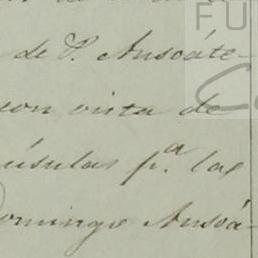 de P. Ansoáte-
con vista de
úsulas p.ª las
Domingo Ansoá-
FU
C